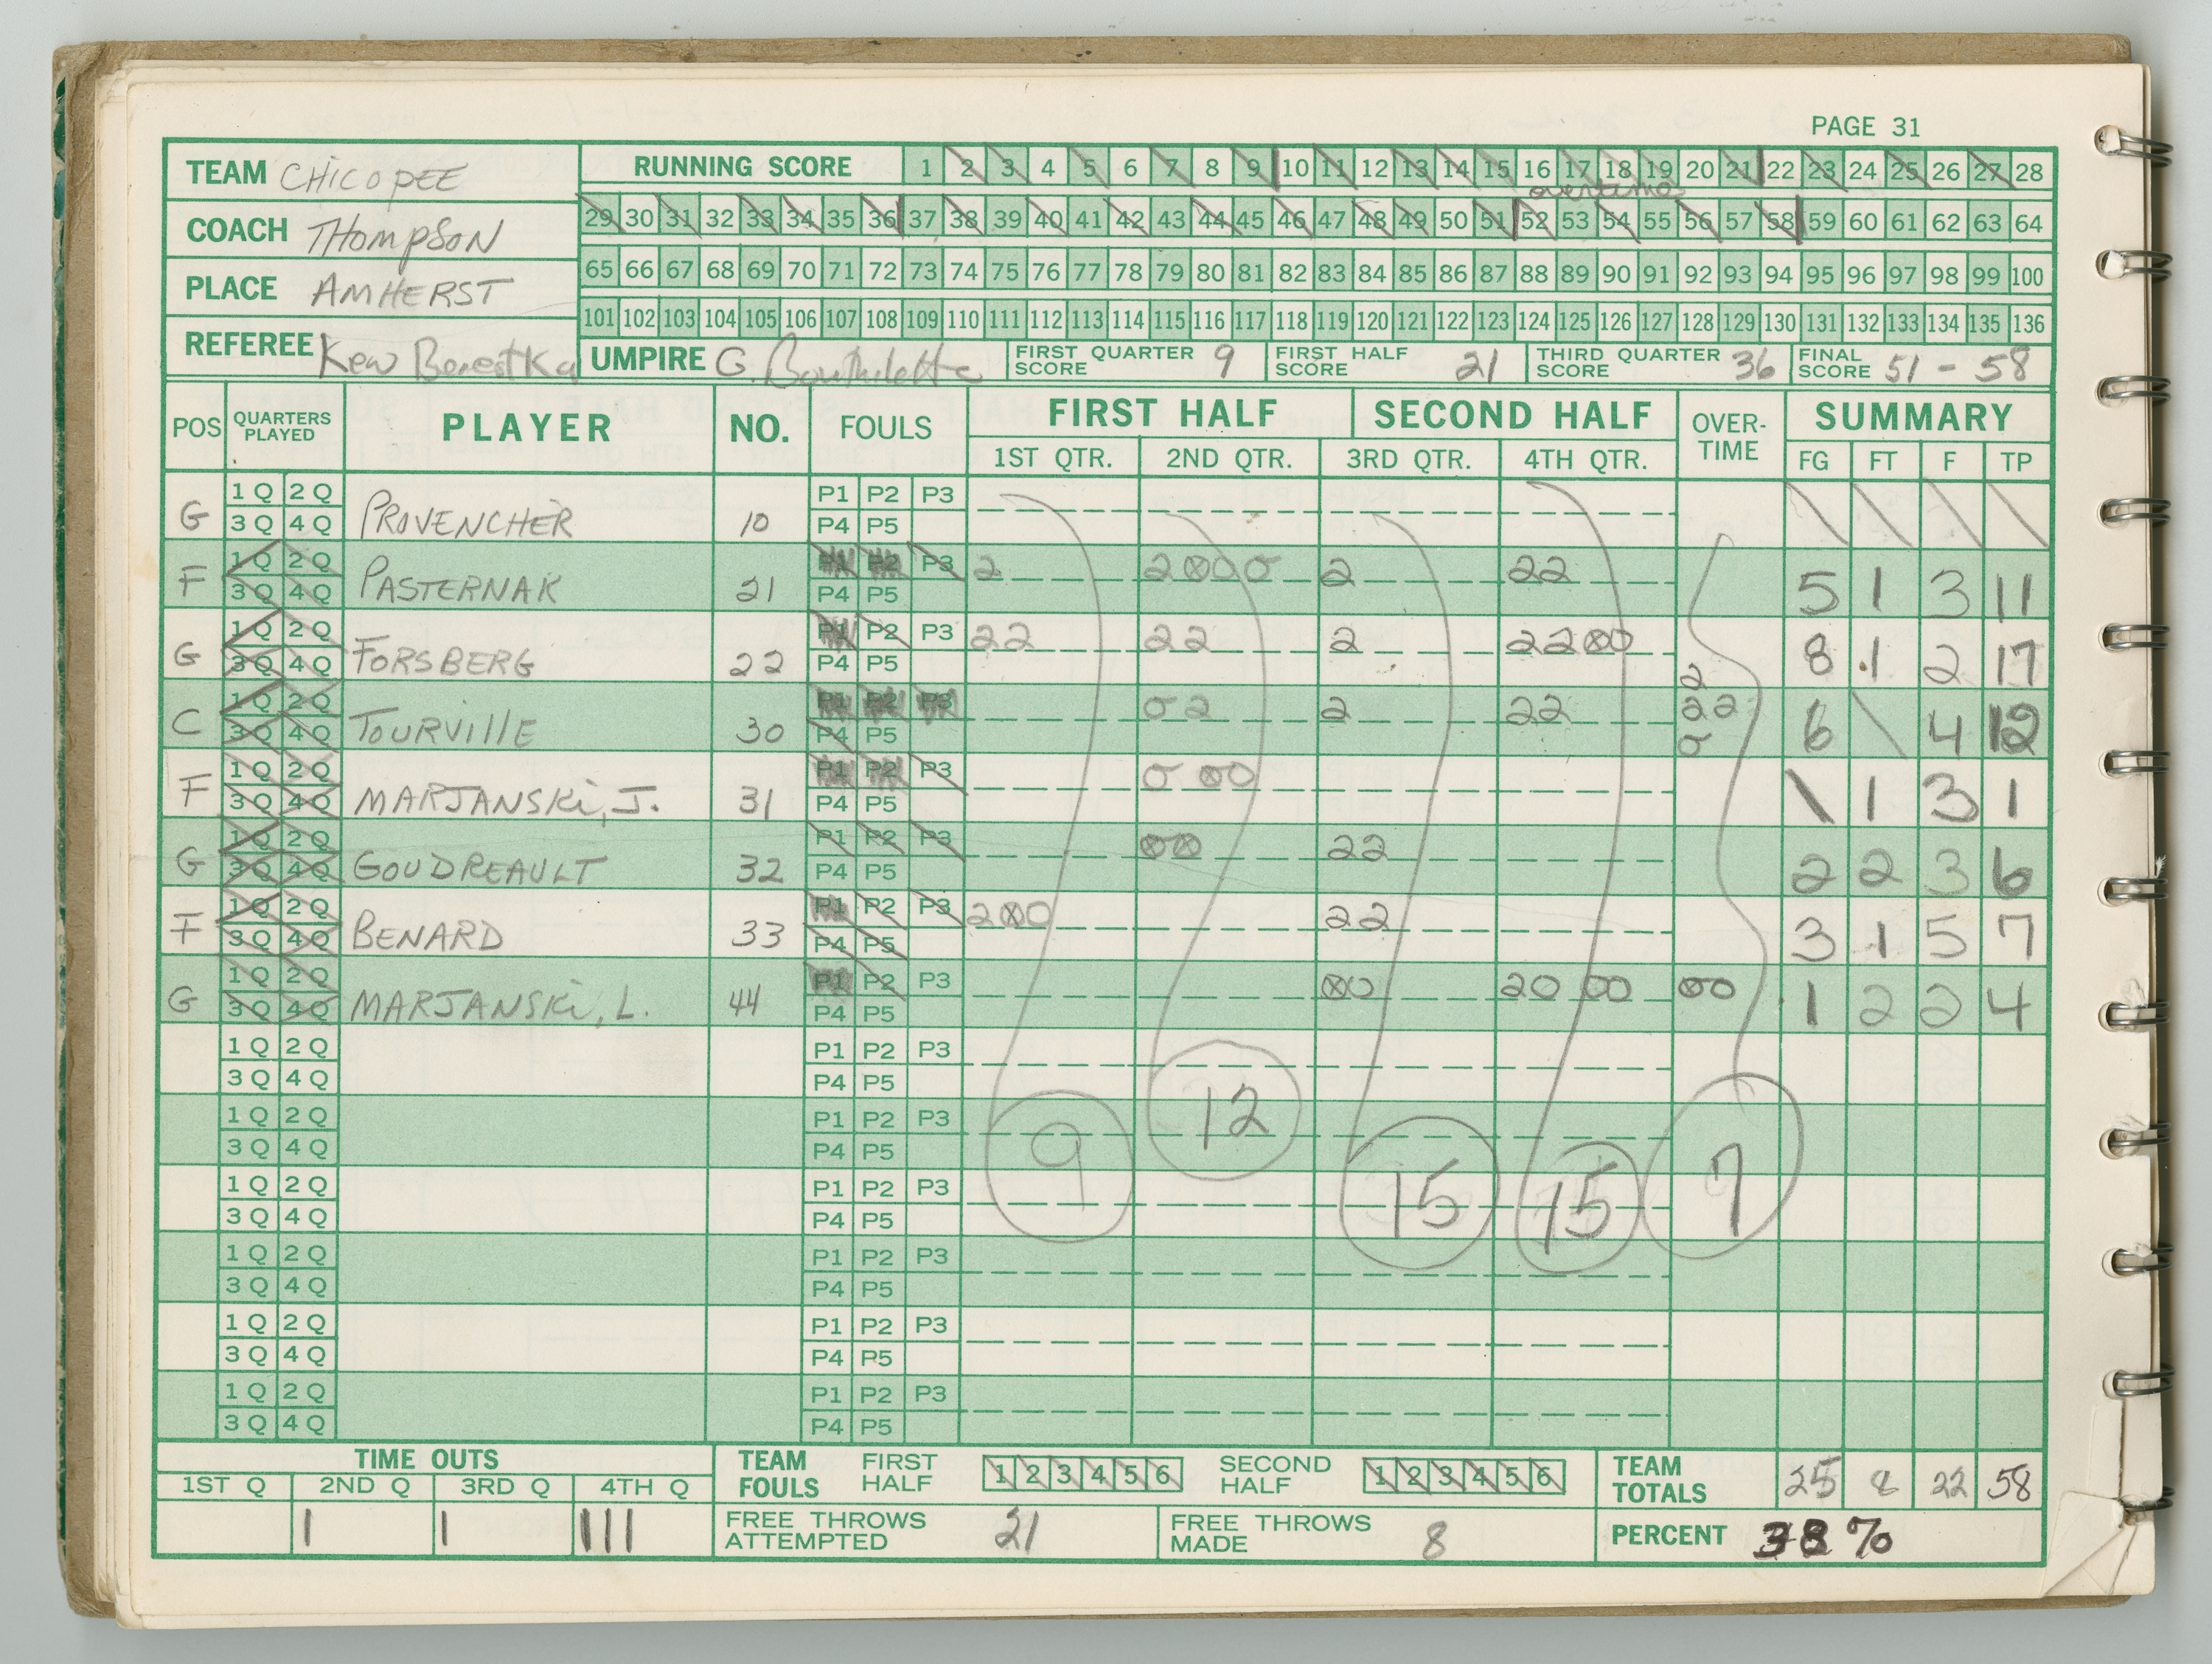 PAGE 31
TEAM CHICOPEE
RUNNING SCORE 1 2 3 4 5 6 7 8 9 10 11 12 13 14 15 16 17 18 19 20 21 22 23 24 25 26 27 28
overtime
COACH THOMPSON
29 30 31 32 33 34 35 36 37 38 39 40 41 42 43 44 45 46 47 48 49 50 51 52 53 54 55 56 57 58 59 60 61 62 63 64
PLACE AMHERST
65 66 67 68 69 70 71 72 73 74 75 76 77 78 79 80 81 82 83 84 85 86 87 88 89 90 91 92 93 94 95 96 97 98 99 100
101 102 103 104 105 106 107 108 109 110 111 112 113 114 115 116 117 118 119 120 121 122 123 124 125 126 127 128 129 130 131 132 133 134 135 136
REFEREE UMPIRE G. FIRST QUARTER SCORE 9 FIRST HALF SCORE 21 THIRD QUARTER SCORE 36 FINAL SCORE 51 - 58
POS QUARTERS PLAYED PLAYER NO. FOULS FIRST HALF SECOND HALF OVER-TIME SUMMARY
1ST QTR. 2ND QTR. 3RD QTR. 4TH QTR. FG FT F TP
1 Q 2 Q P1 P2 P3
G 3 Q 4 Q PROVENCHER 10 P4 P5 \ \ \ \
1 Q 2 Q P1 P2 P3 2 2⊗000 2 22
F 3 Q 4 Q PASTERNAK 21 P4 P5 5 1 3 11
1 Q 2 Q P1 P2 P3 22 22 2 22⊗0
G 3 Q 4 Q FORSBERG 22 P4 P5 2 8 1 2 17
1 Q 2 Q P1 P2 P3 0 2 2 22 22
C 3 Q 4 Q TOURVILLE 30 P4 P5 0 6 \ 4 12
1 Q 2 Q P1 P2 P3 0 ⊗0
F 3 Q 4 Q MARJANSKI, J. 31 P4 P5 \ 1 3 1
1 Q 2 Q P1 P2 P3 ⊗⊗ 22
G 3 Q 4 Q GOUDREAULT 32 P4 P5 2 2 3 6
1 Q 2 Q P1 P2 P3 2⊗0 22
F 3 Q 4 Q BENARD 33 P4 P5 3 1 5 7
1 Q 2 Q P1 P2 P3 ⊗0 20 00 00
G 3 Q 4 Q MARJANSKI, L. 44 P4 P5 1 2 2 4
1 Q 2 Q P1 P2 P3
3 Q 4 Q P4 P5
1 Q 2 Q P1 P2 P3
3 Q 4 Q P4 P5
9 12 15 15 7
1 Q 2 Q P1 P2 P3
3 Q 4 Q P4 P5
1 Q 2 Q P1 P2 P3
3 Q 4 Q P4 P5
1 Q 2 Q P1 P2 P3
3 Q 4 Q P4 P5
1 Q 2 Q P1 P2 P3
3 Q 4 Q P4 P5
TIME OUTS TEAM FOULS FIRST HALF 1 2 3 4 5 6 SECOND HALF 1 2 3 4 5 6 TEAM TOTALS 25 8 22 58
1ST Q 2ND Q 3RD Q 4TH Q
| | ||| FREE THROWS ATTEMPTED 21 FREE THROWS MADE 8 PERCENT 38 %